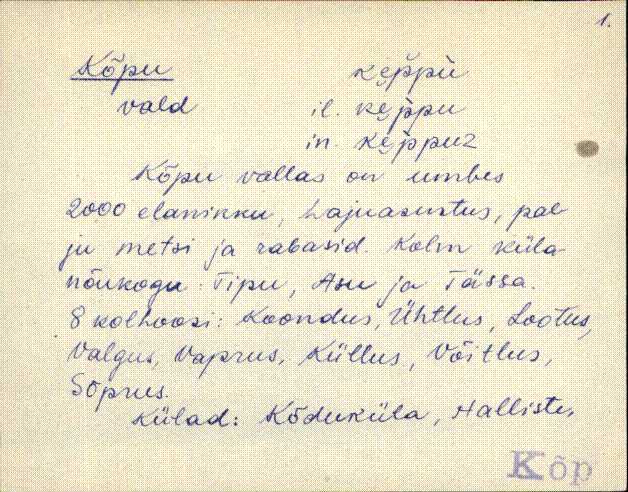 1.
Kõpu kep̆pù
vald il. kep̀pu
in. kep̀puz
Kõpu vallas on umbes
2000 elanikku, hajuasustus, pal
ju metsi ja rabasid. Kolm küla
nõukogu: Tipu, Asu ja Tässa.
8 kolhoosi: Koondus, Ühtlus, Lootus,
Valgus, Vaprus, Küllus, Võitlus,
Sõprus.
Külad: Kõduküla, Halliste,
Kõp